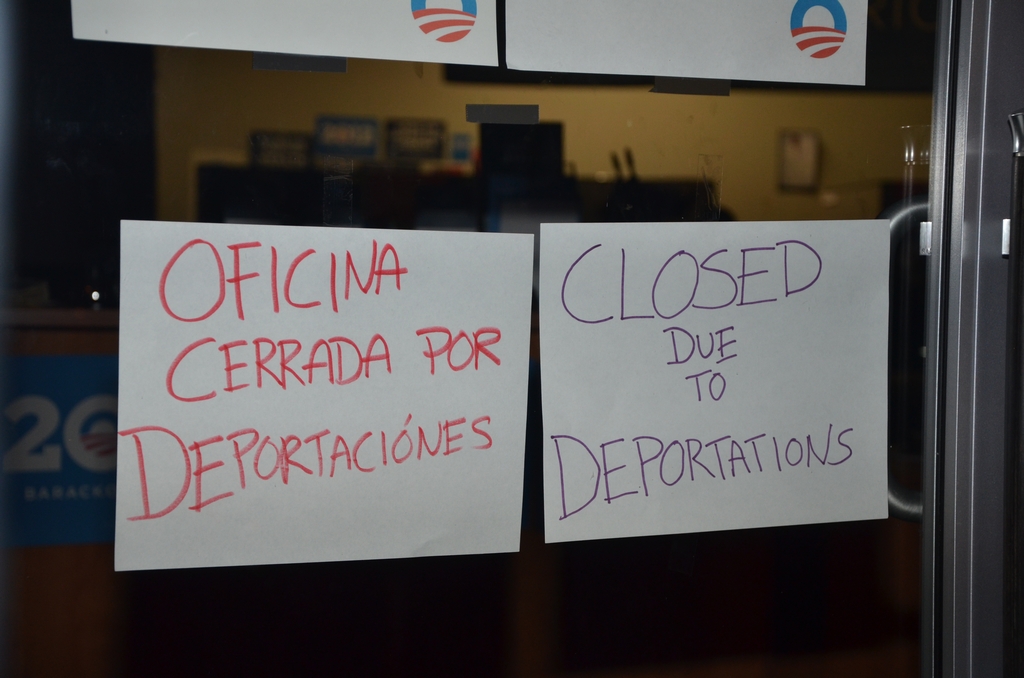 OFICINA
CERRADA POR
DEPORTACIÓNES
CLOSED
DUE
TO
DEPORTATIONS
20
BARACK